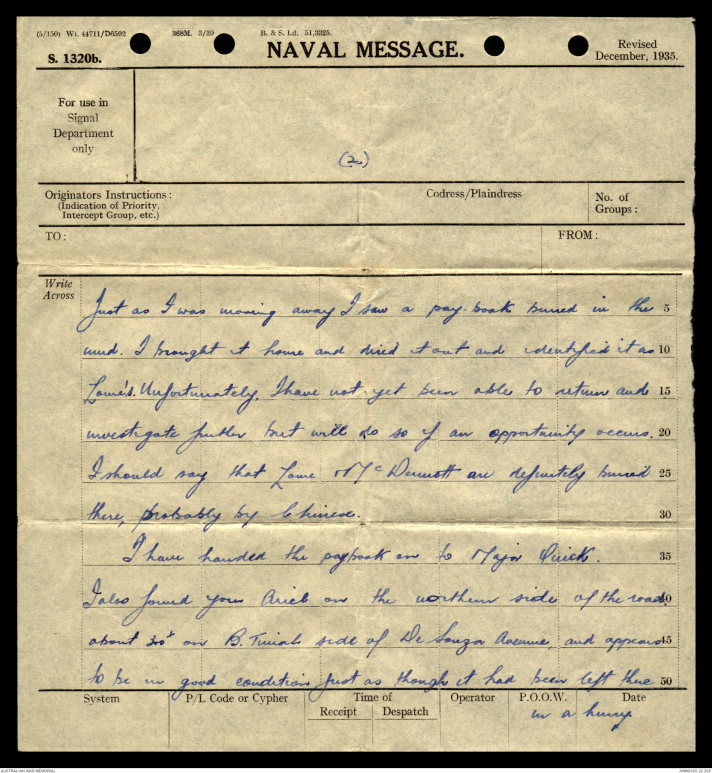 (5/150) Wt. 44711/D6592 368M. 3/39 B. & S. Ld. 51,3325.
S. 1320b.
NAVAL MESSAGE.
Revised
December, 1935.
For use in
Signal
Department
only
(2)
Originators Instructions:
(Indication of Priority,
Intercept Group, etc.)
Codress/Plaindress
No. of
Groups:
TO:
FROM:
Write
Across
Just as I was moving away I saw a pay-book buried in the 5
mud. I brought it home and dried it out and identified it as 10
Lowe's. Unfortunately, I have not yet been able to return and 15
investigate further but will do so if an opportunity occurs. 20
I should say that Lowe & McDermott are definitely buried 25
there, probably by Chinese. 30
I have handed the paybook on to Major Quick. 35
I also found your Ariel on the northern side of the road, 40
about 300x on B. Timah side of De Souza Avenue, and appears 45
to be in good condition just as though it had been left there 50
System
P/L Code or Cypher
Time of
Receipt
Despatch
Operator
P.O.O.W.
Date
in a hurry
AUSTRALIAN WAR MEMORIAL